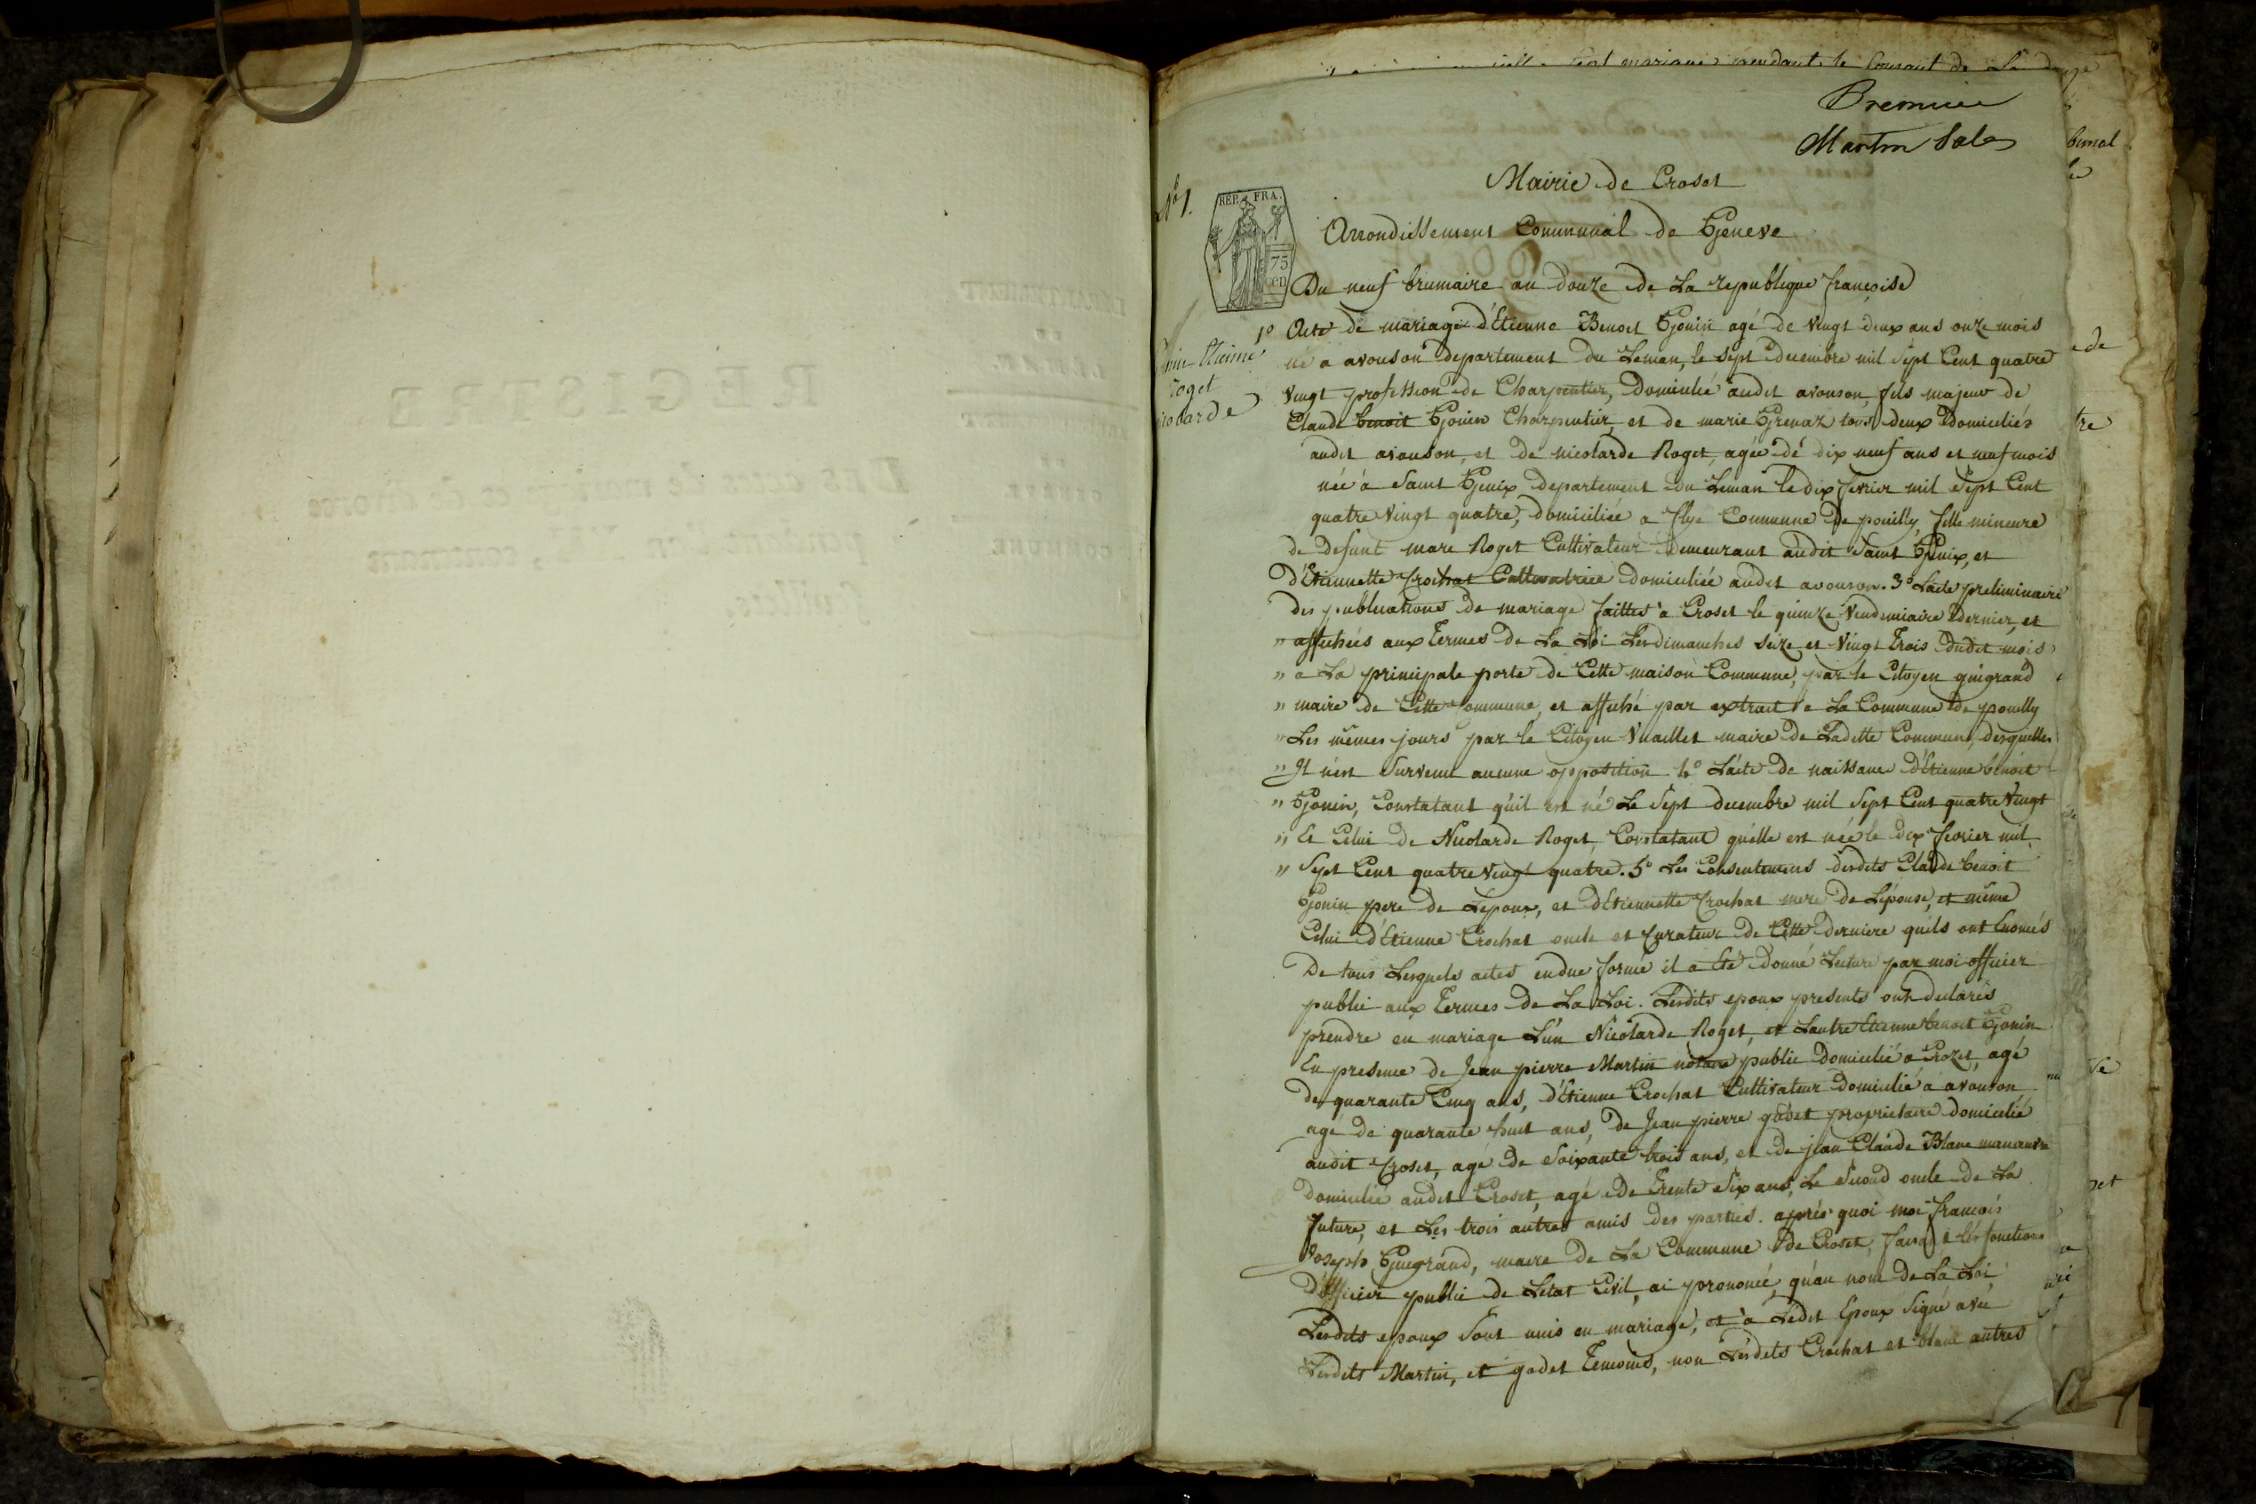 mariage pendant le Courant de La
Premier
Martin
Mairie de Croset
N° 1.
REP. FRA.
75
cen
Arrondissement Communal de Geneve
Du neuf brumaire an douze de La republique françoise
1° Acte de mariage d'Etienne Benoit Gonin agé de vingt deux ans onze mois
né a avouson departement du Leman, le sept decembre mil sept Cent quatre
Etienne
Roget
vingt profession de Charpentier, Domicilié audit avouson, fils majeur de
Claude benoit Gonin Charpentier, et de marie Grenaz tous deux Domiciliés
audit avouson, et de nicolarde Roget, agée de dix neuf ans et neuf mois
née à Saint Genix departement du Leman le dix fevrier mil Sept Cent
quatre vingt quatre, domiciliée a flye Commune de pouilly, fille mineure
de defunt marc Roget Cultivateur demeurant audit Saint Genix, et
d'Etiennette Crochat Cultivatrice domiciliée audit avouson. 3° Lacte preliminaire
des publications de mariage faittes à Croset le quinze Vendemiaire dernier, et
" affichées aux Termes de La Loi Les dimanches seize et Vingt Trois dudit mois
" a La principale porte de Cette maison Commune, par le Citoyen guigrand
" maire de Cette Commune, et affiché par extrait a La Commune de pouilly
" Les mêmes jours par le Citoyen Vuaillet maire de Laditte Commune, desquelles
" Il n'est Survenu aucune opposition 4° L'acte de naissance d'Etienne benoit
" Gonin, Constatant qu'il est né Le Sept decembre mil Sept Cent quatre Vingt
" Et Celui de Nicolarde Roget, Constatant qu'elle est née le dix fevrier mil
" Sept Cent quatre vingt quatre. 5° Les Consentemens desdits Claude benoit
Gonin pere de Lepoux, et d'Etiennette Crochat mere de L'épouse, et même
Celui d'Etienne Crochat oncle et Curateur de Cette derniere quils ont Enoncés
De tous Lesquels actes en due forme il a été donné Lecture par moi officier
public aux Termes de La Loi. Lesdits epoux presents ont declarés
prendre en mariage L'un Nicolarde Roget, et Lautre Etienne benoit Gonin
En presence de Jean pierre Martin notaire public Domicilié a Crozet, agé
de quarante Cinq ans, d'Etienne Crochat Cultivateur Domicilié à avouson
agé de quarante huit ans, de Jean pierre godet proprietaire domicilié
audit Croset, agé de Soixante trois ans, et de jean Claude Blanc
domicilié audit Croset, agé de Trente Six ans, Le Second oncle de La
future, et Les trois autres amis des parties. après quoi moi françois
Joseph Guigrand, maire de La Commune de Croset, faisant les fonctions
D'officier public de L'etat Civil, ai prononcé, qu'au nom de La Loi
Lesdits epoux Sont unis en mariage, et à Ledit Epoux Signé avec
Lesdits Martin, et godet Temoins, non Lesdits Crochat et blanc autres
REGISTRE
COMMUNE.